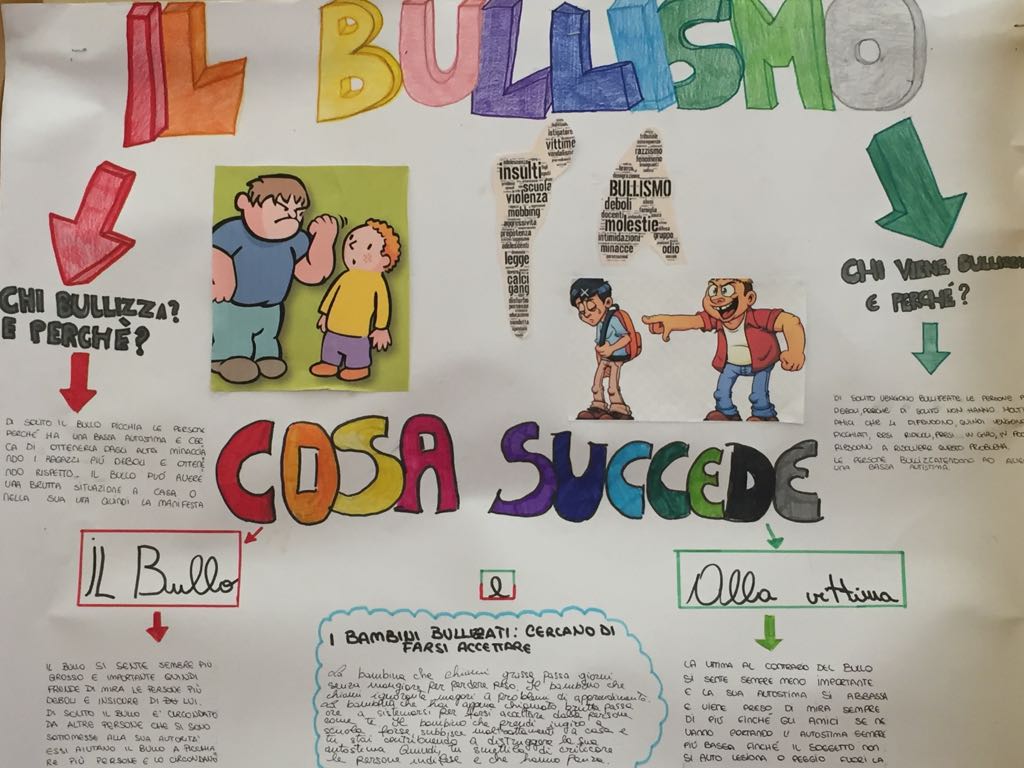 IL BULLISMO
insulti
scuola
violenza
mobbing
aggressività
prepotenza
legge
calci
gang
istigatore
vittime
razzismo
fenomeno
BULLISMO
deboli
docenti
famiglia
molestie
intimidazioni
gruppo
minacce
odio
CHI BULLIZZA?
E PERCHÈ?
DI SOLITO IL BULLO PICCHIA LE PERSONE
PERCHÉ HA UNA BASSA AUTOSTIMA E CER
CA DI OTTENERLA DAGLI ALTRI MINACCIA
NDO I RAGAZZI PIÙ DEBOLI E OTTENE
NDO RISPETTO... IL BULLO PUÒ AVERE
UNA BRUTTA SITUAZIONE A CASA O
NELLA SUA VITA QUINDI LA MANIFESTA
CHI VIENE BULLIZZ
E PERCHÉ?
DI SOLITO VENGONO BULLIZZATE LE PERSONE
DEBOLI, PERCHÉ DI SOLITO NON HANNO MOLTI
AMICI CHE LI DIFENDONO, QUINDI VENGONO
PICCHIATI, RESI RIDICOLI, PRESI IN GIRO, IN POCHI
RIESCONO A RISOLVERE QUESTO PROBLEMA.
LE PERSONE BULLIZZATE AD
UNA BASSA AUTISTIMA.
COSA SUCCEDE
IL Bullo
e
Alla vittima
IL BULLO SI SENTE SEMPRE PIÙ
GROSSO E IMPORTANTE QUINDI
PRENDE DI MIRA LE PERSONE PIÙ
DEBOLI E INSICURE DI LUI.
DI SOLITO IL BULLO E' CIRCONDATO
DA ALTRE PERSONE CHE SI SONO
SOTTOMESSE ALLA SUA AUTORITA'
ESSI AIUTANO IL BULLO A PICCHIA
RE PIÙ PERSONE E LO CIRCONDANO
I BAMBINI BULLIZZATI: CERCANO DI
FARSI ACCETTARE
La bambina che chiami grassa passa giorni
senza mangiare per perdere peso. Il bambino che
chiami ignorante magari a problemi di apprendimento.
La bambina che hai appena chiamato brutta passa
ore a sistemarsi per farsi accettare dalle persone
come te. Il bambino che prendi in giro a
scuola forse subisce maltrattamenti a casa e
tu stai contribuendo a distruggere la sua
autostima. Quindi, tu smettila di criticare
le persone indifese e che hanno paura.
LA VITTIMA AL CONTRARIO DEL BULLO
SI SENTE SEMPRE MENO IMPORTANTE
E LA SUA AUTOSTIMA SI ABBASSA
E VIENE PRESO DI MIRA SEMPRE
DI PIÙ FINCHÉ GLI AMICI SE NE
VANNO PORTANDO L'AUTOSTIMA SEMPRE
PIÙ BASSA FINCHÉ IL SOGGETTO NON
SI AUTO LESIONA O PEGGIO FUORI LA